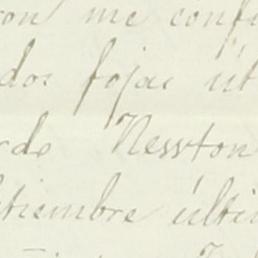 ron me confi
dos fojas út
rdo Newton
etiembre últi